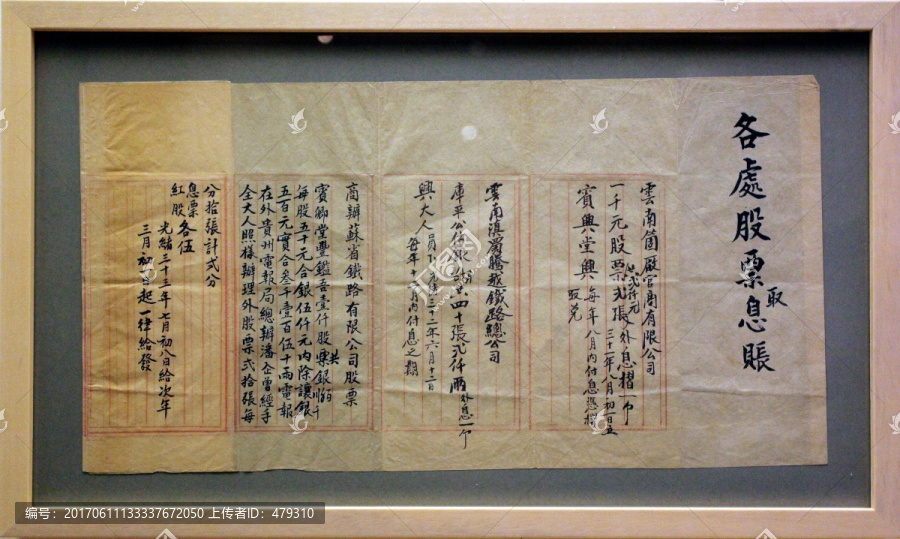 各處股票取息賬
雲南箇廠官商有限公司
一千元股票弍張 共弍仟元 外息摺一㐌
三十一年八月初一日五
賓興堂興 每年八月內付息憑摺
取兌
雲南滇蜀騰越鐵路總公司
庫平公估 四十張弍仟兩 外息一
興大人 三十二年六月十二日
每年十月內付息之期
商辦蘇省鐵路有限公司股票
賓卿堂豐鑑吾壹仟股票 共 銀
每股五十元合銀伍仟元內除讓銀
五百元實合叁千壹百伍十兩電報
在外貴州電報局總辦潘企曾經手
仝大人照樣辦理外股票弍拾張每
分拾張計弍分
息票
紅股 各伍
光緒三十三年七月初八日給次年
三月初一日起一律給發
编号：20170611133337672050 上传者ID：479310